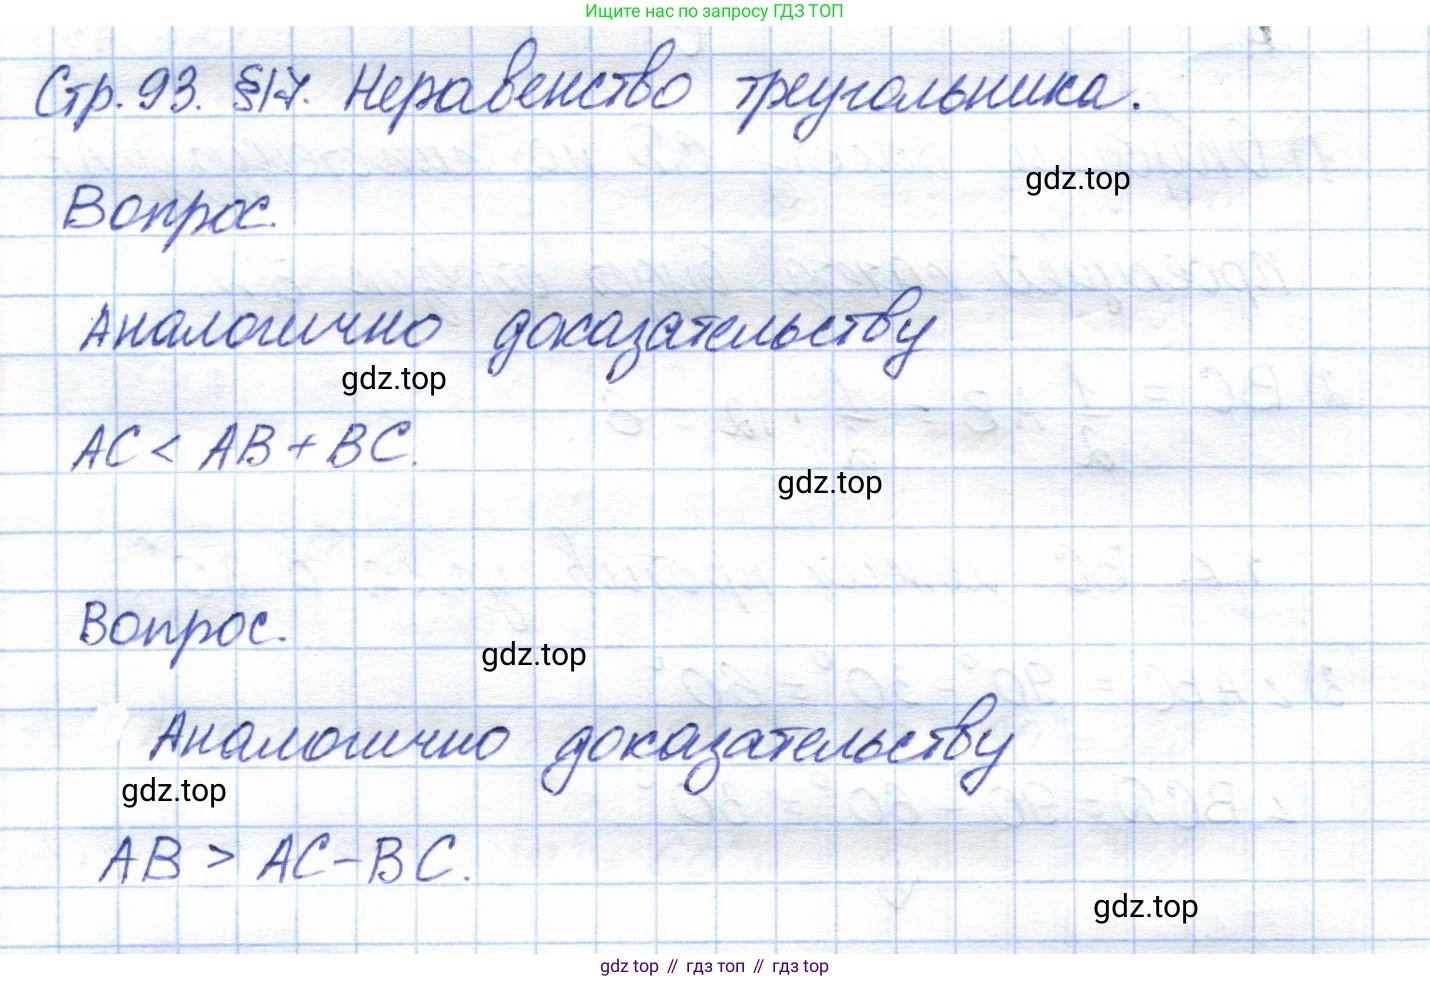 Ищите нас по запросу ГДЗ ТОП
Стр. 93. §17. Неравенство треугольника.
gdz.top
Вопрос.
Аналогично доказательству
gdz.top
AC < AB + BC.
gdz.top
Вопрос.
gdz.top
Аналогично доказательству
gdz.top
AB > AC - BC.
gdz.top
gdz top // гдз топ // гдз top